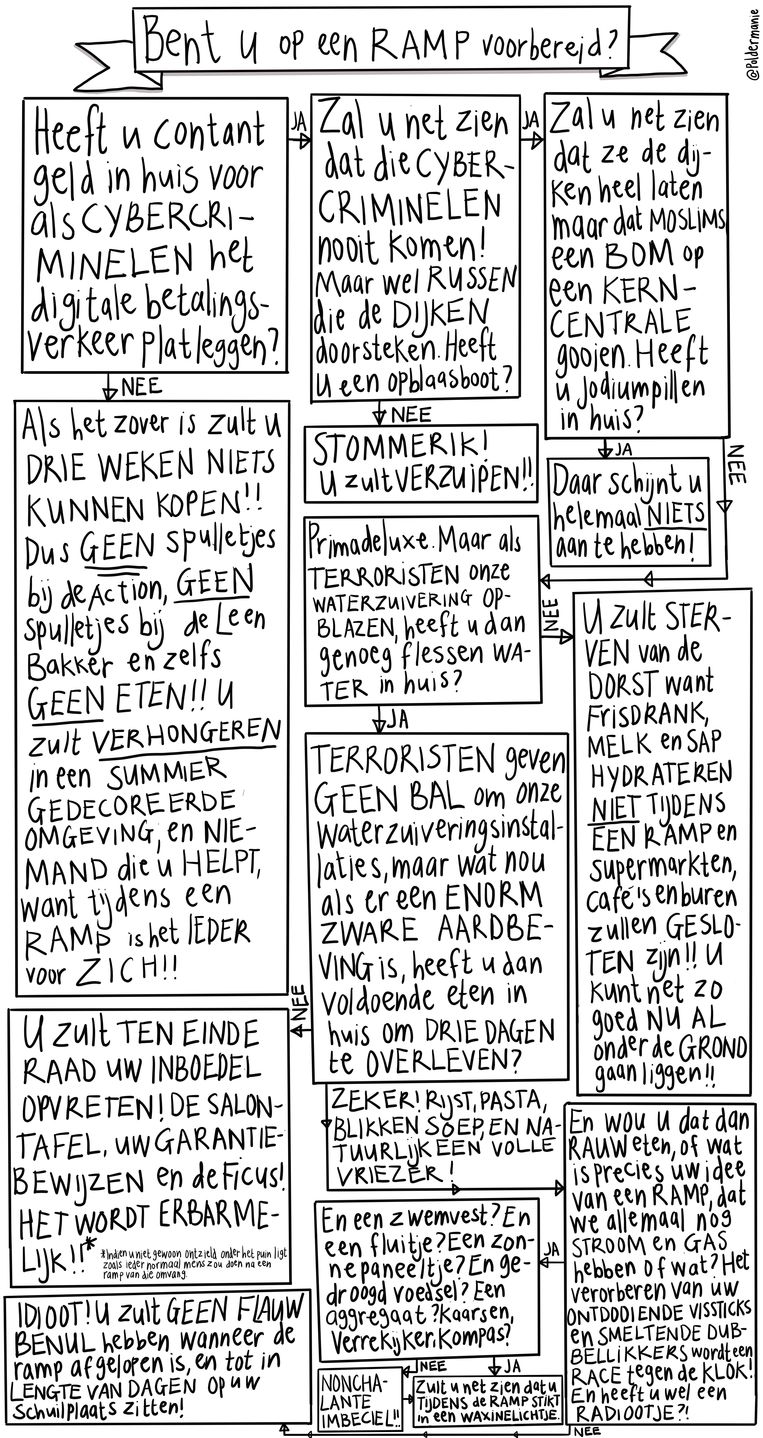 Bent u op een RAMP voorbereid?
@Poldermanie
Heeft u contant
geld in huis voor
als CYBERCRI-
MINELEN het
digitale betalings-
verkeer platleggen?
JA
Zal u net zien
dat die CYBER-
CRIMINELEN
nooit komen!
Maar wel RUSSEN
die de DIJKEN
doorsteken. Heeft
u een opblaasboot?
JA
Zal u net zien
dat ze de dij-
ken heel laten
maar dat MOSLIMS
een BOM op
een KERN-
CENTRALE
gooien. Heeft
u jodiumpillen
in huis?
NEE
Als het zover is zult u
DRIE WEKEN NIETS
KUNNEN KOPEN!!
Dus GEEN spulletjes
bij de Action, GEEN
spulletjes bij de Leen
Bakker en zelfs
GEEN ETEN!! U
zult VERHONGEREN
in een SUMMIER
GEDECOREERDE
OMGEVING, en NIE-
MAND die u HELPT,
want tijdens een
RAMP is het IEDER
voor ZICH!!
NEE
STOMMERIK!
U zult VERZUIPEN!!
JA
Daar schijnt u
helemaal NIETS
aan te hebben!
NEE
Primadeluxe. Maar als
TERRORISTEN onze
WATERZUIVERING OP-
BLAZEN, heeft u dan
genoeg flessen WA-
TER in huis?
NEE
U zult STER-
VEN van de
DORST want
FRISDRANK,
MELK en SAP
HYDRATEREN
NIET TIJDENS
EEN RAMP en
supermarkten,
café's en buren
zullen GESLO-
TEN zijn!! U
kunt net zo
goed NU AL
onder de GROND
gaan liggen!!
JA
TERRORISTEN geven
GEEN BAL om onze
waterzuiveringsinstal-
laties, maar wat nou
als er een ENORM
ZWARE AARDBE-
VING is, heeft u dan
voldoende eten in
huis om DRIE DAGEN
te OVERLEVEN?
NEE
U zult TEN EINDE
RAAD UW INBOEDEL
OPVRETEN! DE SALON-
TAFEL, UW GARANTIE-
BEWIJZEN en de Ficus!
HET WORDT ERBARME-
LIJK!!*
*Indien u niet gewoon ontzield onder het puin ligt
zoals ieder normaal mens zou doen na een
ramp van die omvang.
ZEKER! RIJST, PASTA,
BLIKKEN SOEP, EN NA-
TUURLIJK EEN VOLLE
VRIEZER!
En wou u dat dan
RAUW eten, of wat
is precies uw idee
van een RAMP, dat
we allemaal nog
STROOM en GAS
hebben of wat? Het
verorberen van uw
ONTDOOIENDE VISSTICKS
en SMELTENDE DUB-
BELLIKKERS wordt een
RACE tegen de KLOK!
En heeft u wel een
RADIOOTJE?!
JA
En een zwemvest? En
een fluitje? Een zon-
nepaneeltje? En ge-
droogd voedsel? Een
aggregaat? Kaarsen,
Verrekijker, Kompas?
NEE
NONCHA-
LANTE
IMBECIEL!!
JA
Zult u net zien dat u
TIJDENS de RAMP STIKT
in een WAXINELICHTJE.
NEE
IDIOOT! U zult GEEN FLAUW
BENUL hebben wanneer de
ramp afgelopen is, en tot in
LENGTE VAN DAGEN op uw
schuilplaats zitten!